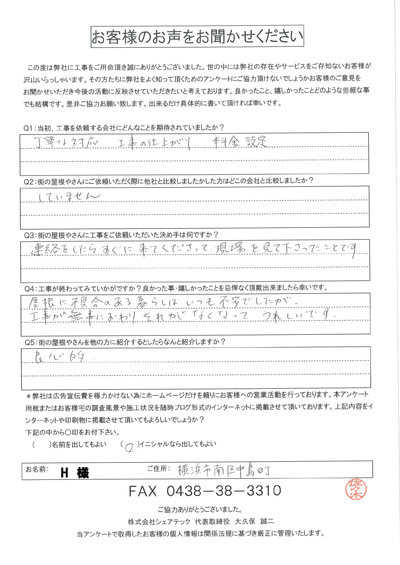 お客様のお声をお聞かせください
この度は弊社に工事をご用命頂き誠にありがとうございました。世の中には弊社の存在やサービスをご存知ないお客様が
沢山いらっしゃいます。その方たちに弊社をよく知って頂くためのアンケートにご協力頂けないでしょうかお客様のご意見を
お聞かせいただき今後の活動に反映させていただきたいと考えております。良かったこと、嬉しかったことどのような些細な事
でも結構です。是非ご協力お願い致します。出来るだけ具体的に書いて頂ければ幸いです。
Q1:当初、工事を依頼する会社にどんなことを期待されていましたか？
丁寧な対応 工事の仕上がり 料金設定
Q2:街の屋根やさんにご依頼いただく際に他社と比較しましたかした方はどこの会社と比較しましたか？
していません
Q3:街の屋根やさんに工事をご依頼いただいた決め手は何ですか？
連絡をしたらすぐに来てくださって現場を見て下さったことです
Q4:工事が終わってみていかがですか？良かった事・嬉しかったことを忌憚なく頂戴出来ましたら幸いです。
屋根に不具合のある暮らしはいつも不安でしたが、
工事が無事におわりそれがなくなってうれしいです。
Q5:街の屋根やさんを他の方に紹介するとしたらなんと紹介しますか？
良心的
＊弊社は広告宣伝費を極力かけない為にホームページだけを頼りにお客様への営業活動を行っております。本アンケート
用紙またはお客様宅の調査風景や施工状況を随時ブログ形式のインターネットに掲載させて頂いております。上記内容をイ
ンターネットや印刷物に掲載させて頂いてもよろしいでしょうか？
下記の中から〇印をお付下さい。
（　）名前を出してもよい （○）イニシャルなら出してもよい
お名前： H 様 ご住所： 横浜市南区中島町
FAX 0438-38-3310
佐々木
ご協力ありがとうございました。
株式会社シェアテック 代表取締役 大久保 誠二
当アンケートで取得したお客様の個人情報は関係法規に基づき厳正に管理いたします。